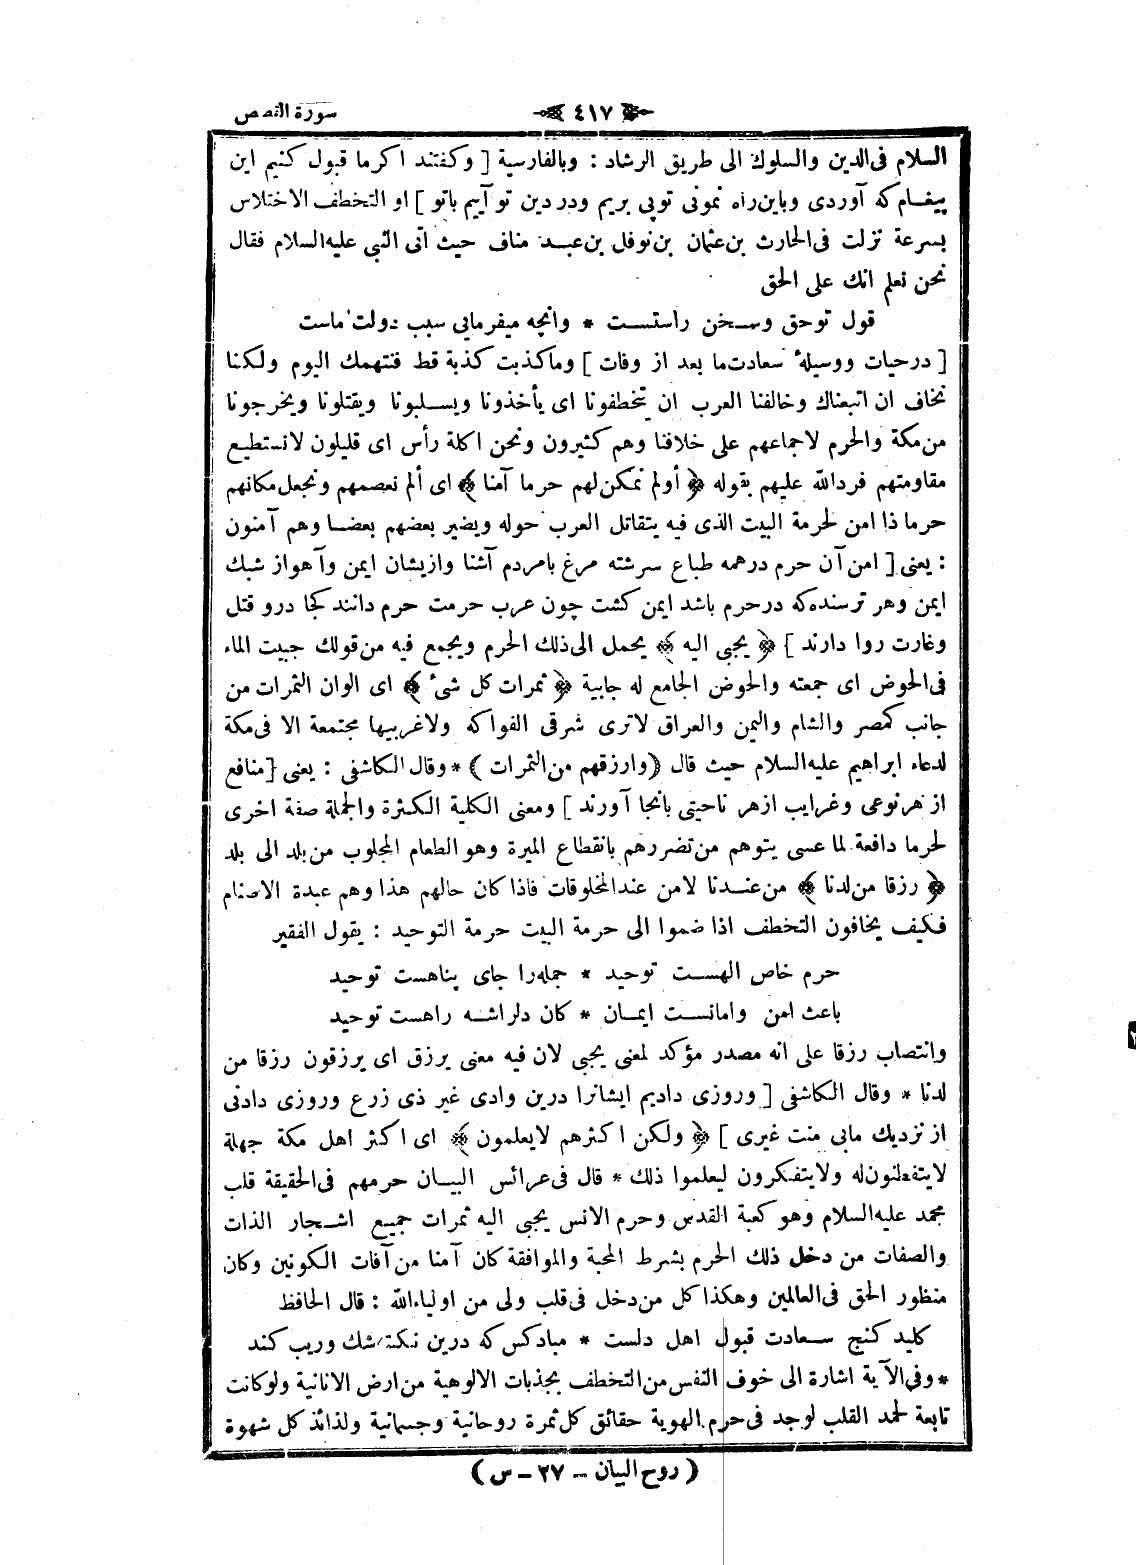 سورة القصص
٤١٧
السلام فى‌الدين والسلوك الى طريق الرشاد : وبالفارسية [ وكفتند اكرما قبول كنيم اين
پيغام كه آوردى وباين‌راه نمونى توپى بريم ودر دين تو آييم باتو ] او التخطف الاختلاس
بسرعة نزلت فى‌الحارث بن‌عثمان بن‌نوفل بن‌عبد مناف حيث اتى النبى عليه‌السلام فقال
نحن نعلم انك على الحق
قول توحق وسخن راستست * وانچه ميفرمايى سبب دولت ماست
[ درحيات ووسيلهٔ سعادت‌ما بعد از وفات ] وماكذبت كذبة قط فنتهمك اليوم ولكنا
نخاف ان اتبعناك وخالفنا العرب ان يتخطفونا اى يأخذونا ويسلبونا ويقتلونا ويخرجونا
من‌مكة والحرم لاجماعهم على خلافنا وهم كثيرون ونحن اكلة رأس اى قليلون لانستطيع
مقاومتهم فردالله عليهم بقوله ﴿ أولم نمكن‌لهم حرما آمنا ﴾ اى ألم نعصمهم ونجعل‌مكانهم
حرما ذا امن لحرمة البيت الذى فيه يتقاتل العرب حوله ويضير بعضهم بعضا وهم آمنون
: يعنى [ امن آن حرم درهمه طباع سرشته مرغ بامردم آشنا وازيشان ايمن وآهواز شبك
ايمن وهر ترسنده‌كه درحرم باشد ايمن كشت چون عرب حرمت حرم دانند كجا درو قتل
وغارت روا دارند ] ﴿ يجبى اليه ﴾ يحمل الى‌ذلك الحرم ويجمع فيه من‌قولك جبيت الماء
فى‌الحوض اى جمعته والحوض الجامع له جابية ﴿ ثمرات كل شىٔ ﴾ اى الوان الثمرات من
جانب كمصر والشام واليمن والعراق لاترى شرقى الفواكه ولاغربيها مجتمعة الا فى‌مكة
لدعاء ابراهيم عليه‌السلام حيث قال (وارزقهم من‌الثمرات) * وقال‌الكاشفى : يعنى [منافع
از هرنوعى وغرايب ازهر ناحيتى بآنجا آورند ] ومعنى الكلية الكثرة والجملة صفة اخرى
لحرما دافعة لما عسى يتوهم من‌تضررهم بانقطاع الميرة وهو الطعام المجلوب من‌بلد الى بلد
﴿ رزقا من‌لدنا ﴾ من‌عندنا لامن عندالمخلوقات فاذا كان حالهم هذا وهم عبدة الاصنام
فكيف يخافون التخطف اذا ضموا الى حرمة البيت حرمة التوحيد : يقول الفقير
حرم خاص الهست توحيد * جمله‌را جاى پناهست توحيد
باعث امن وامانست ايمان * كان دلراشه راهست توحيد
وانتصاب رزقا على انه مصدر مؤكد لمعنى يجبى لان فيه معنى يرزق اى يرزقون رزقا من
لدنا * وقال الكاشفى [ وروزى داديم ايشانرا درين وادى غير ذى زرع وروزى دادنى
از نزديك مابى منت غيرى ] ﴿ ولكن اكثرهم لايعلمون ﴾ اى اكثر اهل مكة جهلة
لايتفطنون‌له ولايتفكرون ليعلموا ذلك * قال فى‌عرائس البيان حرمهم فى‌الحقيقة قلب
محمد عليه‌السلام وهو كعبة القدس وحرم الانس يجبى اليه ثمرات جميع اشجار الذات
والصفات من دخل ذلك الحرم بشرط المحبة والموافقة كان آمنا من‌آفات الكونين وكان
منظور الحق فى‌العالمين وهكذا كل من‌دخل فى‌قلب ولى من اولياءالله : قال الحافظ
كليد كنج سعادت قبول اهل دلست * مبادكس كه درين نكته شك وريب كند
* وفى‌الآية اشارة الى خوف النفس من‌التخطف بجذبات الالوهية من‌ارض الانانية ولوكانت
تابعة لمحمد القلب لوجد فى‌حرم الهوية حقائق كل‌ثمرة روحانية وجسمانية ولذائذ كل شهوة
( روح البيان – ٢٧ – س )